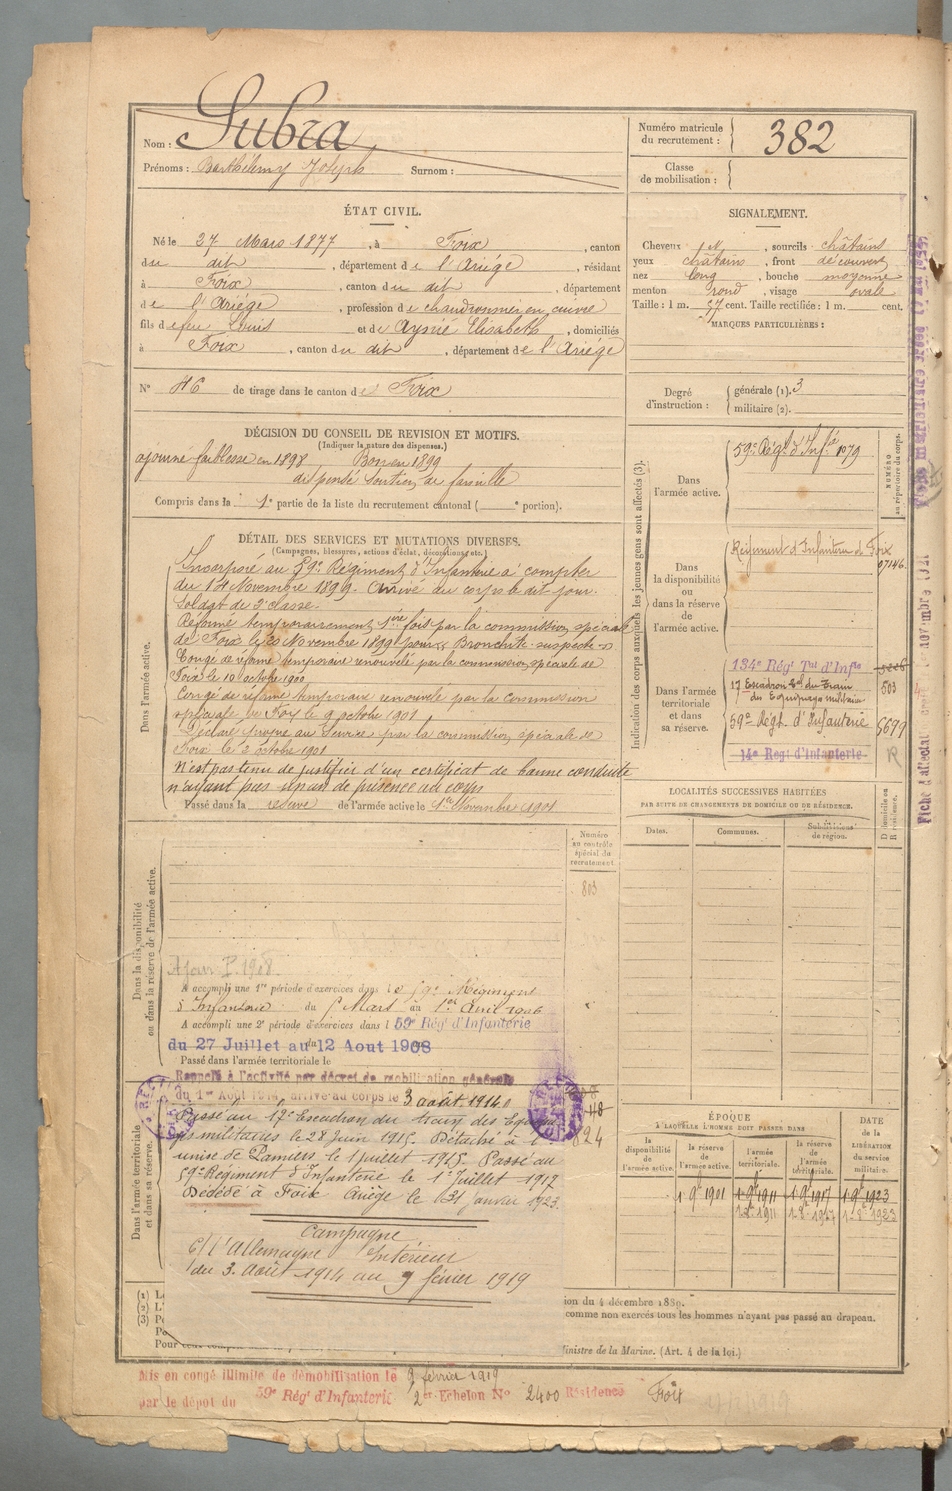 Nom : Subra
Prénoms : Barthélemy Joseph Surnom :
Numéro matricule du recrutement : 382
Classe de mobilisation :
ÉTAT CIVIL.
Né le 27 Mars 1877, à Foix, canton
du dit, département de l'Ariége, résidant
à Foix, canton du dit, département
de l'Ariége, profession de chaudronnier en cuivre
fils de feu Louis et de Aynié Elisabeth, domiciliés
à Foix, canton du dit, département de l'Ariége
N° 46 de tirage dans le canton de Foix
SIGNALEMENT.
Cheveux N, sourcils châtains
yeux châtains, front découvert
nez long, bouche moyenne
menton rond, visage ovale
Taille : 1 m. 57 cent. Taille rectifiée : 1 m. cent.
MARQUES PARTICULIÈRES :
Degré d'instruction : générale (1). 3
militaire (2).
DÉCISION DU CONSEIL DE REVISION ET MOTIFS.
(Indiquer la nature des dispenses.)
ajourné faiblesse en 1898 Bon en 1899
dispensé soutien de famille
Compris dans la 1e partie de la liste du recrutement cantonal ( e portion).
DÉTAIL DES SERVICES ET MUTATIONS DIVERSES.
(Campagnes, blessures, actions d'éclat, décorations, etc.)
Dans l'armée active.
Incorporé au 59e Régiment d'Infanterie à compter
du 14 Novembre 1899. Arrivé au corps le dit jour.
Soldat de 2e classe.
Réformé temporairement 1ère fois par la commission spéciale
de Foix le 20 Novembre 1899 pour Bronchite suspecte
Congé de réforme temporaire renouvelé par la commission spéciale de
Foix le 10 octobre 1900
Congé de réforme temporaire renouvelé par la Commission
spéciale de Foix le 9 octobre 1901
Déclaré propre au service par la commission spéciale de
Foix le 2 octobre 1901
N'est pas tenu de justifier d'un certificat de bonne conduite
n'ayant pas un an de présence au corps
Passé dans la réserve de l'armée active le 1er Novembre 1901
Indication des corps auxquels les jeunes gens sont affectés (3).
NUMÉRO au répertoire du corps.
Dans l'armée active.
59e Régt d'Infie 1079
Dans la disponibilité ou dans la réserve de l'armée active.
Régiment d'Infanterie de Foix
07146
Dans l'armée territoriale et dans sa réserve.
134e Régt Tal d'Infie
17 Escadron Tal du Train 503
des Equipages militaires
59e Régt. d'Infanterie 5679
14e Regt d'Infanterie R
LOCALITÉS SUCCESSIVES HABITÉES
PAR SUITE DE CHANGEMENTS DE DOMICILE OU DE RÉSIDENCE.
Dates. Communes. Subdivisions de région. D domicile ou R résidence.
Numéro au contrôle spécial du recrutement
803
Dans la disponibilité ou dans la réserve de l'armée active.
A accompli une 1re période d'exercices dans le 59e Régiment
d'Infanterie du 5 Mars au 1er Avril 1906
A accompli une 2e période d'exercices dans l 59e Régt d'Infanterie
du 27 Juillet au 12 Aout 1908
Passé dans l'armée territoriale le
Dans l'armée territoriale et dans sa réserve.
Rappelé à l'activité par décret de mobilisation générale
du 1er Août 1914 arrivé au corps le 3 août 1914
Passé au 17e Escadron du train des Equipa-
ges militaires le 28 Juin 1915. Détaché à l'
usine de Pamiers le 1 juillet 1915. Passé au
59e Régiment d'Infanterie le 1er Juillet 1917
Décédé à Foix Ariège le 31 janvier 1923
Campagne
C/ l'Allemagne Intérieur
du 3. Août 1914 au 9 février 1919
824
ÉPOQUE
A LAQUELLE L'HOMME DOIT PASSER DANS
la disponibilité de l'armée active. la réserve de l'armée active. l'armée territoriale. la réserve de l'armée territoriale. DATE de la LIBÉRATION du service militaire.
1 9e 1901 1 9e 1911 1 9e 1917 1 9e 1923
(1)
(2)
(3)
ion du 4 décembre 1889.
comme non exercés tous les hommes n'ayant pas passé au drapeau.
Ministre de la Marine. (Art. 4 de la loi.)
Mis en congé illimité de démobilisation le 9 février 1919
par le dépot du 59e Régt d'Infanterie 2er Echelon N° 2400 Résidence Foix